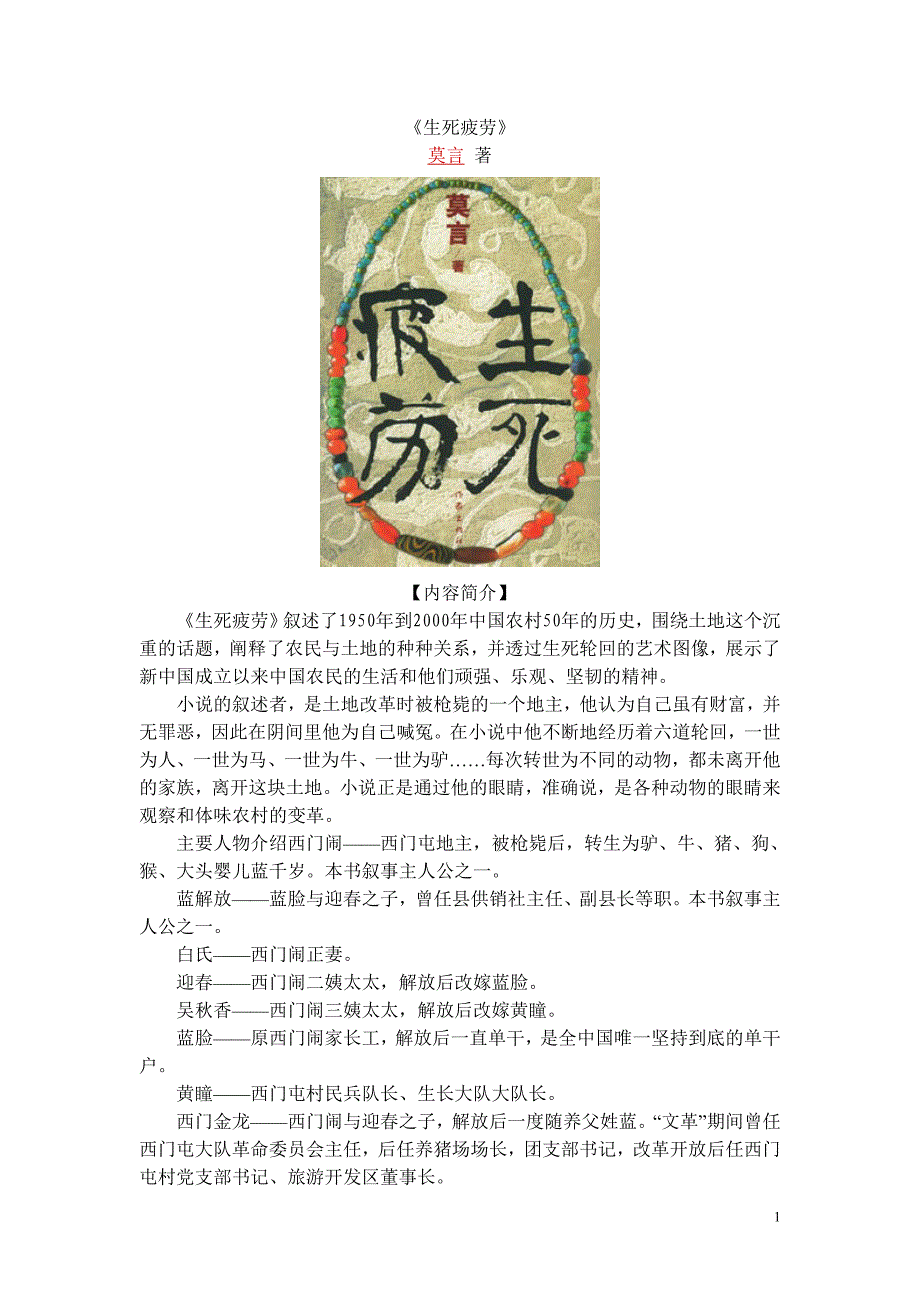 《生死疲劳》
莫言 著
莫言
著
生死
疲劳
作家出版社
【内容简介】
《生死疲劳》叙述了1950年到2000年中国农村50年的历史，围绕土地这个沉
重的话题，阐释了农民与土地的种种关系，并透过生死轮回的艺术图像，展示了
新中国成立以来中国农民的生活和他们顽强、乐观、坚韧的精神。
小说的叙述者，是土地改革时被枪毙的一个地主，他认为自己虽有财富，并
无罪恶，因此在阴间里他为自己喊冤。在小说中他不断地经历着六道轮回，一世
为人、一世为马、一世为牛、一世为驴……每次转世为不同的动物，都未离开他
的家族，离开这块土地。小说正是通过他的眼睛，准确说，是各种动物的眼睛来
观察和体味农村的变革。
主要人物介绍西门闹——西门屯地主，被枪毙后，转生为驴、牛、猪、狗、
猴、大头婴儿蓝千岁。本书叙事主人公之一。
蓝解放——蓝脸与迎春之子，曾任县供销社主任、副县长等职。本书叙事主
人公之一。
白氏——西门闹正妻。
迎春——西门闹二姨太太，解放后改嫁蓝脸。
吴秋香——西门闹三姨太太，解放后改嫁黄瞳。
蓝脸——原西门闹家长工，解放后一直单干，是全中国唯一坚持到底的单干
户。
黄瞳——西门屯村民兵队长、生长大队大队长。
西门金龙——西门闹与迎春之子，解放后一度随养父姓蓝。“文革”期间曾任
西门屯大队革命委员会主任，后任养猪场场长，团支部书记，改革开放后任西门
屯村党支部书记、旅游开发区董事长。
1